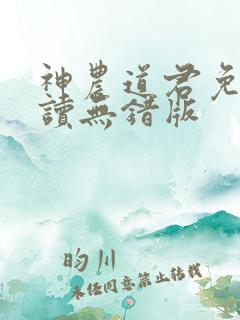 神農道君免
讀無錯版
昀川
未经同意禁止转载